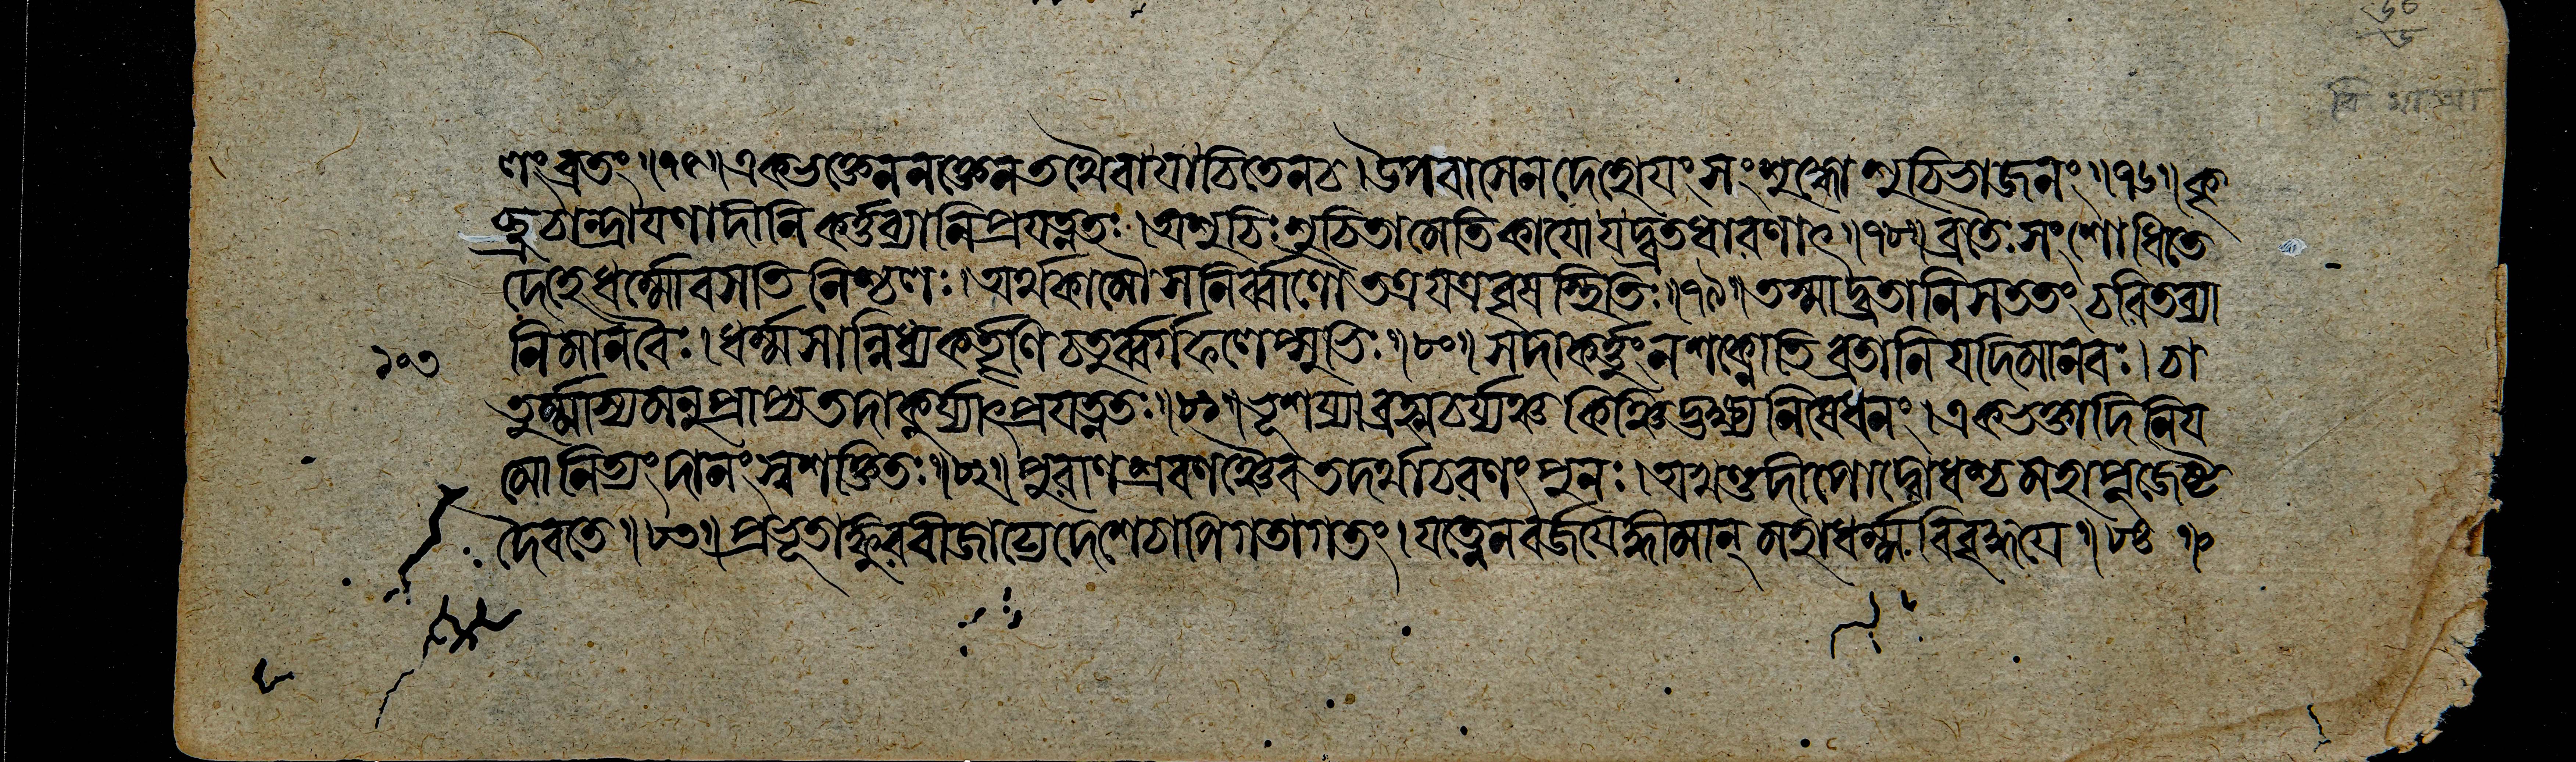 ণং ব্রতং ॥৭৫॥ একভক্তেন নক্তেন তথৈবাযাচিতেন চ । উপবাসেন দেহোযং সংশুদ্ধো শুচিভাজনং ॥৭৬॥ কৃ
চ্ছ্রচান্দ্রাযণাদীনি কর্ত্তব্যানি প্রযত্নতঃ । অশুচিঃ শুচিতামেতি কাযো যদ্ব্রতধারণাৎ ॥৭৮॥ ব্রতৈঃ সংশোধিতে
দেহে ধর্ম্মো বসতি নিশ্চলঃ । অর্থকামৌ স নির্ব্বাণৌ তত্র যত্র বৃষস্থিতিঃ ॥৭৯॥ তস্মাদ্ব্রতানি সততং চরিতব্যা
নি মানবৈঃ । ধর্ম্মসান্নিধ্যকর্ত্তৃণি চতুর্ব্বর্গফলেপ্সুভিঃ ॥৮০॥ সদা কর্ত্তুং ন শক্নোতি ব্রতানি যদি মানবঃ । চা
১০৩
তুর্ম্মাস্যমনুপ্রাপ্য তদা কুর্য্যাৎ প্রযত্নতঃ ॥৮১॥ ভূশয্যা ব্রহ্মচর্য্যঞ্চ কিঞ্চিদ্ভক্ষ্যনিষেধনং । একভক্তাদিনিয
মো নিত্যং দানং স্বশক্তিতঃ ॥৮২॥ পুরাণশ্রবণঞ্চৈব তদর্থাচরণং পুনঃ । অখণ্ডদীপোদ্বোধশ্চ মহাপূজেষ্ট
দৈবতে ॥৮৩॥ প্রভূতাঙ্কুরবীজাঢ্যে দেশে চাপি গতাগতং । যত্নেন বর্জযেদ্ধীমান্ মহাধর্ম্মবিবৃদ্ধযে ॥৮৪॥